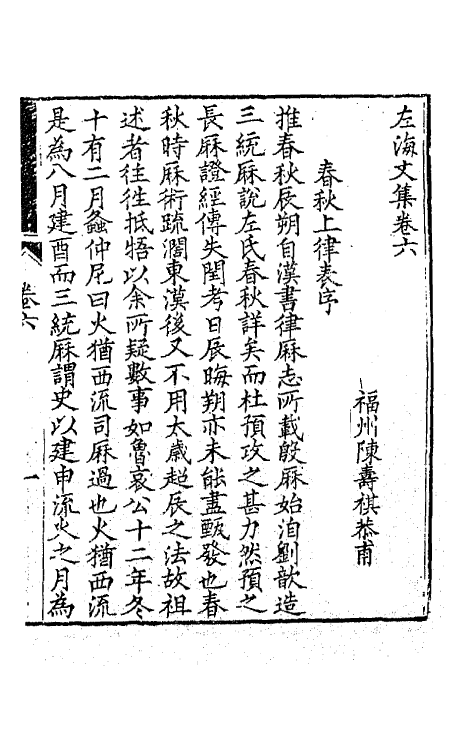 左海文集卷六
福州陳壽祺恭甫
春秋上律表序
推春秋辰朔自漢書律厤志所載殷厤始洎劉歆造
三統厤說左氏春秋詳矣而杜預攻之甚力然預之
長厤證經傳失閏考日辰晦朔亦未能盡甄發也春
秋時厤術疏濶東漢後又不用太歲超辰之法故祖
述者往往抵牾以余所疑數事如魯哀公十二年冬
十有二月螽仲尼曰火猶西流司厤過也火猶西流
是為八月建酉而三統厤謂史以建申流火之月為
卷六
一